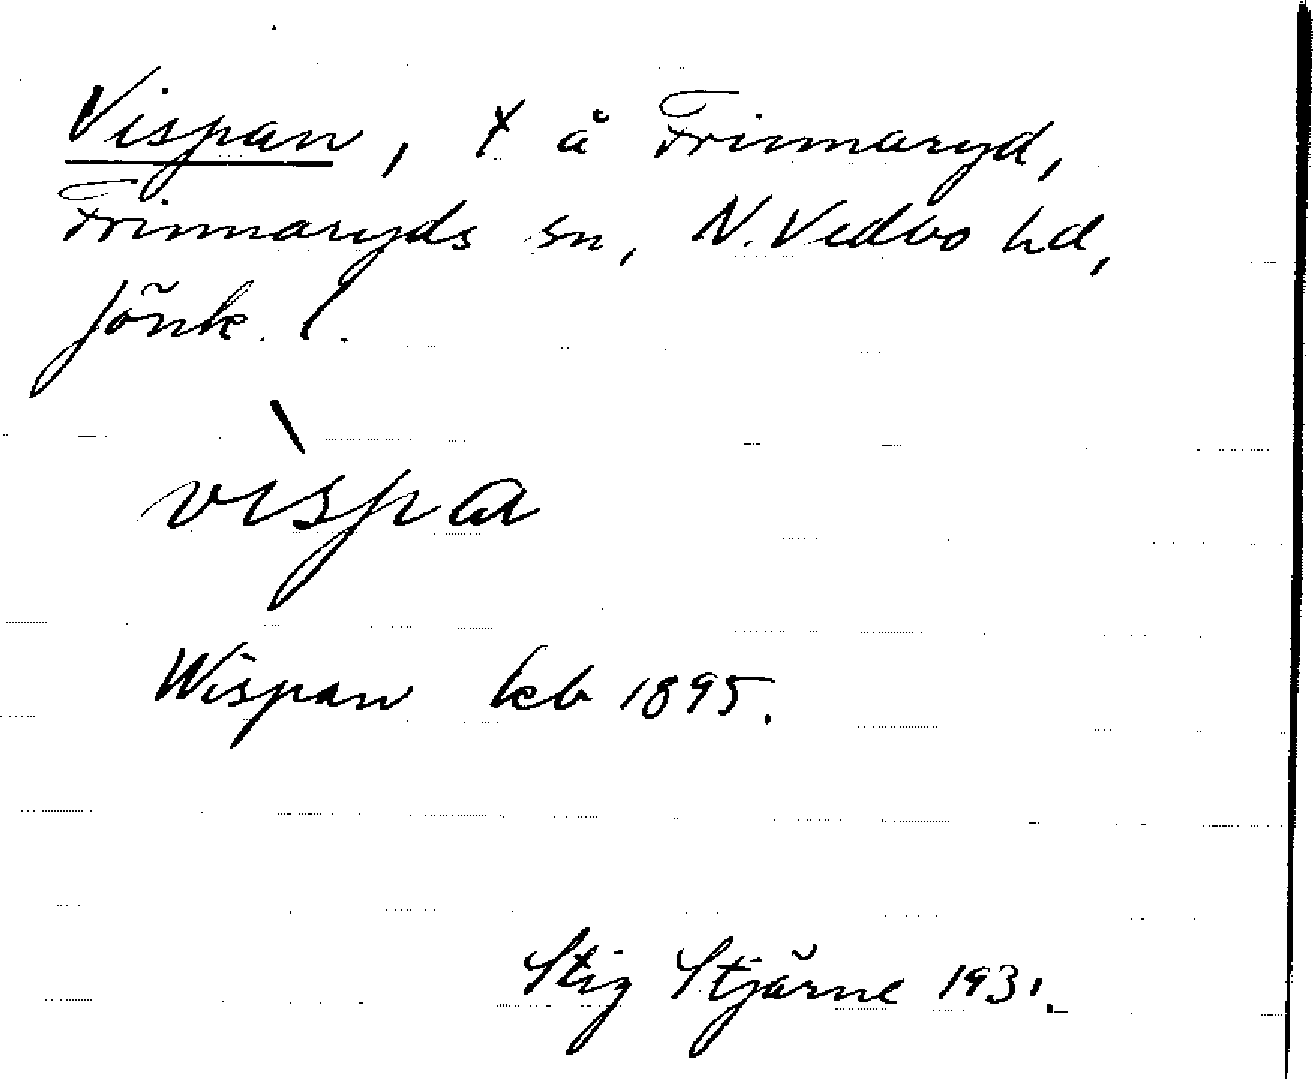 Vispan, x å Frinnaryd,
Frinnaryds sn, N. Vedbo hd,
Jönk. l.
vispa
Wispan kb 1895.
Stig Stjärne 1931.